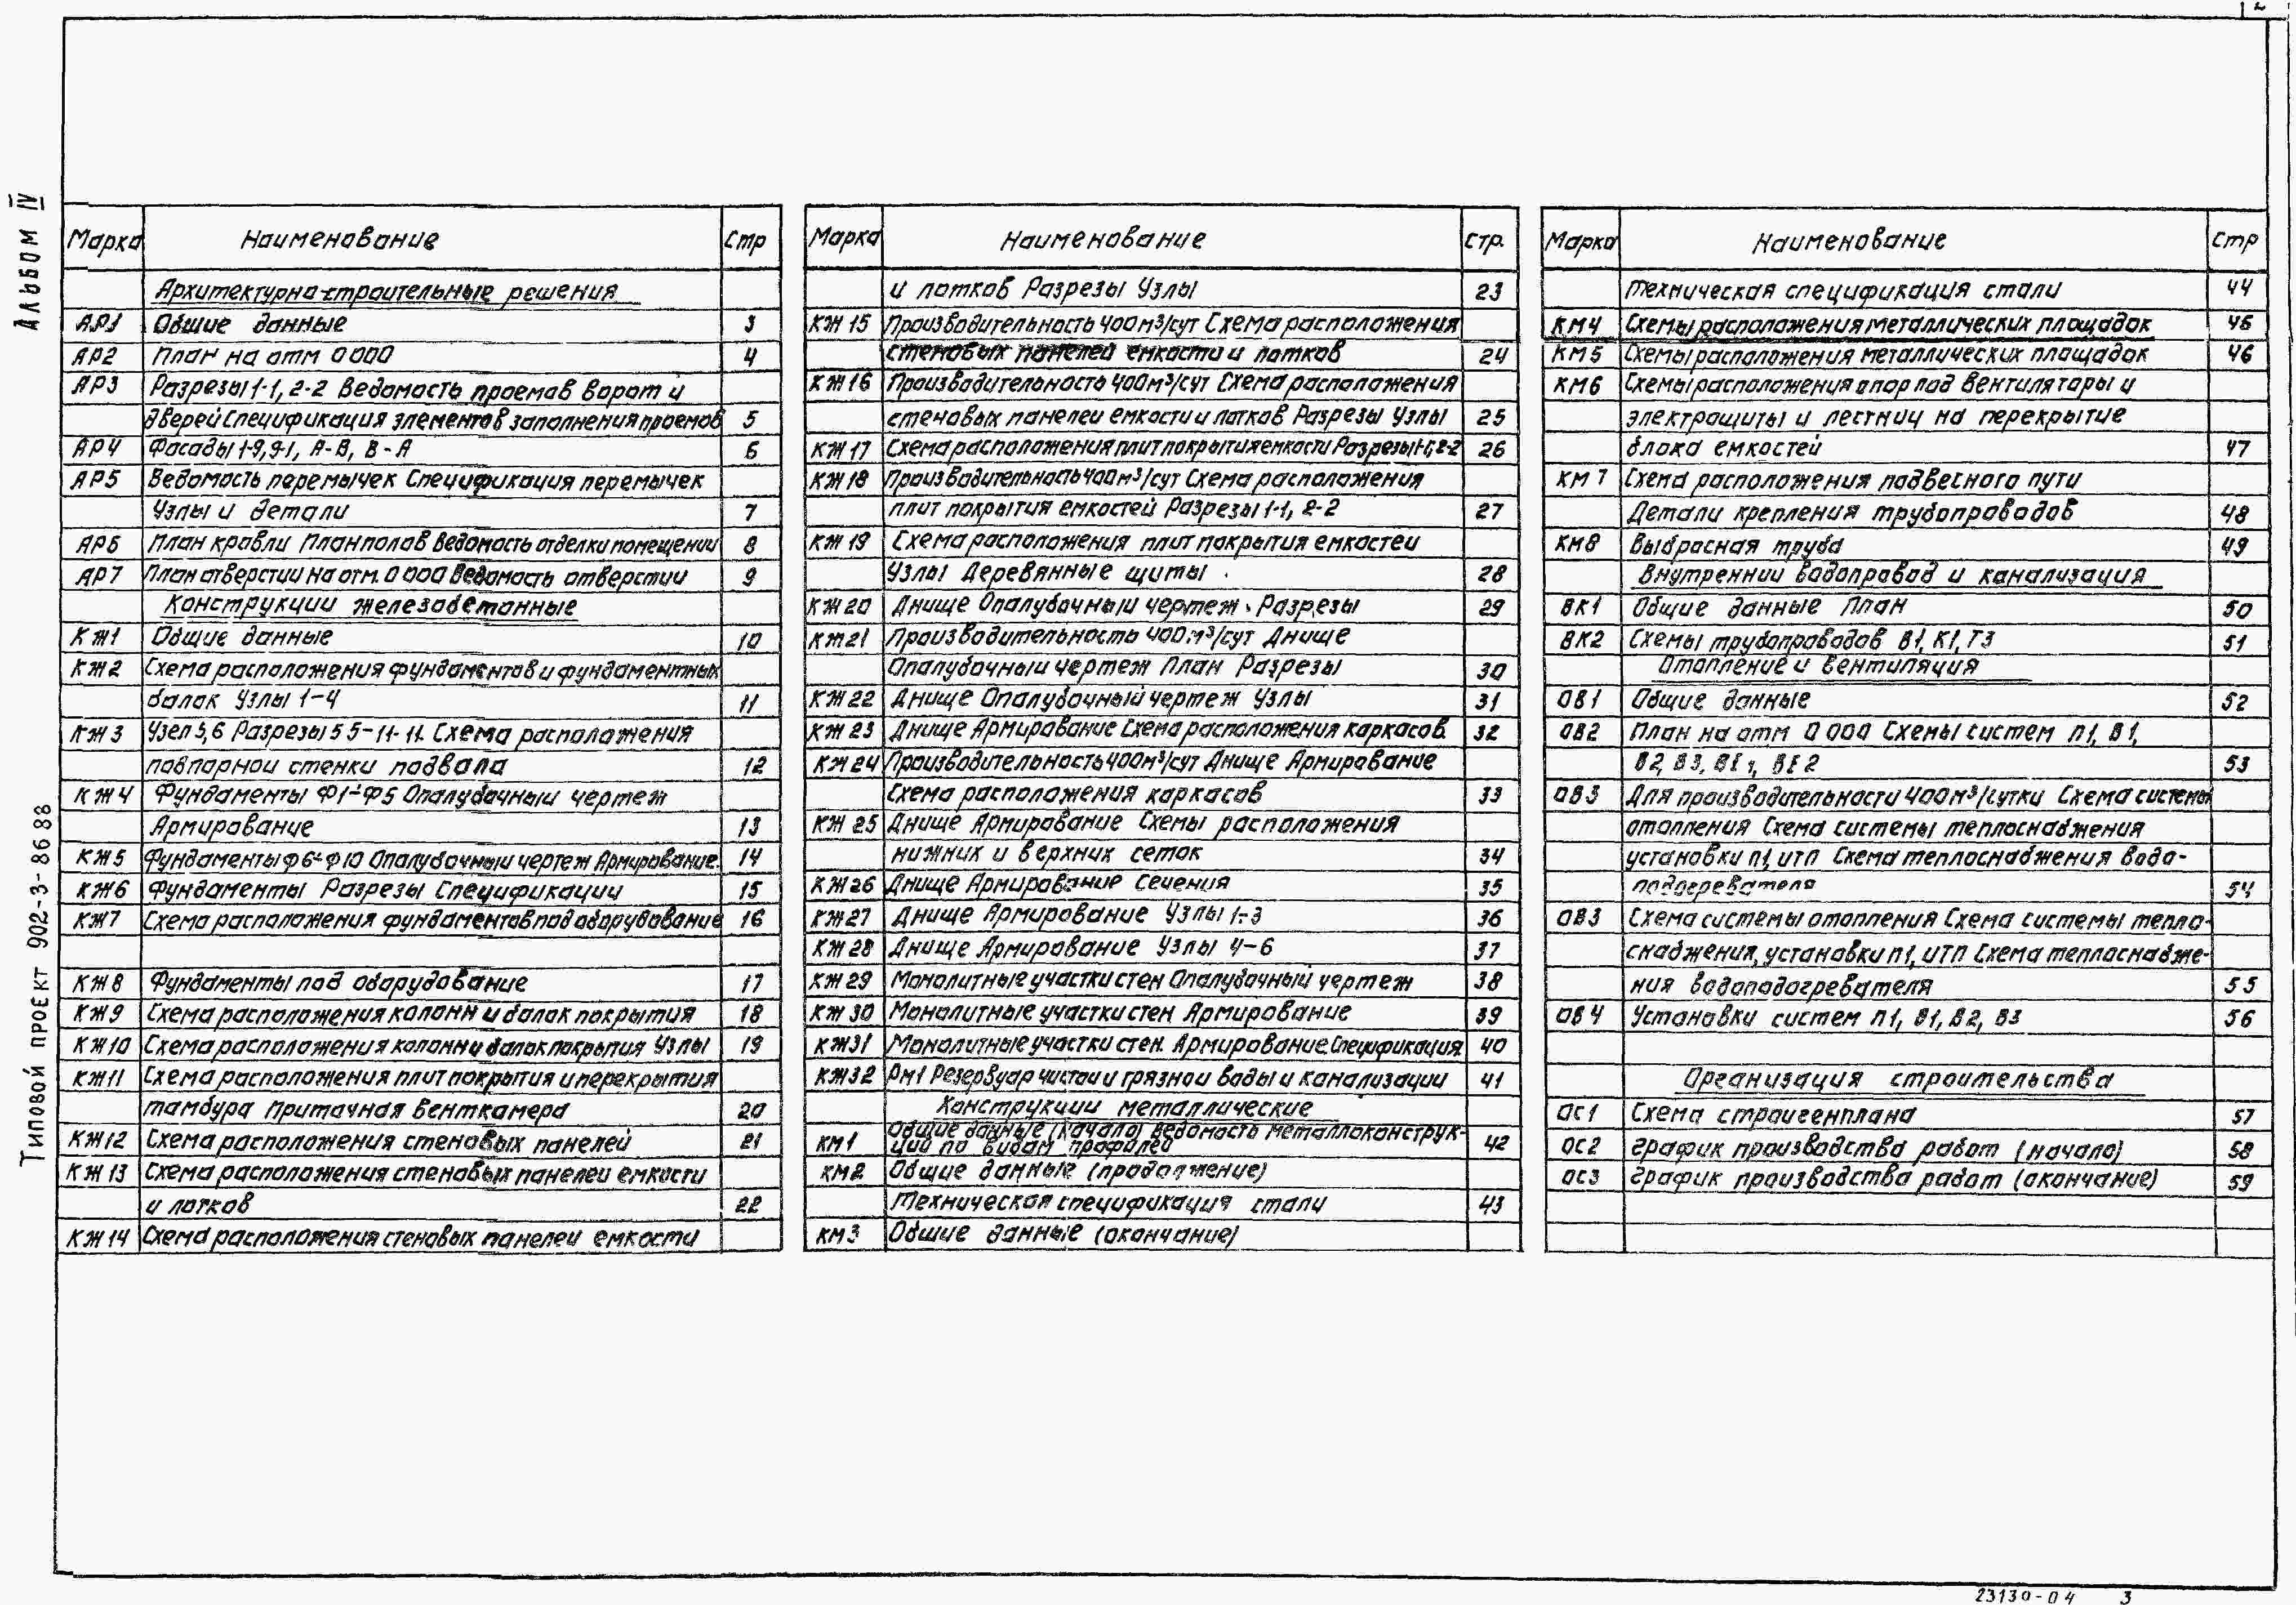 2
Альбом IV
Типовой проект 902-3-86 88
Марка Наименование Стр
Архитектурно-строительные решения
АР1 Общие данные 3
АР2 План на отм 0 000 4
АР3 Разрезы 1-1, 2-2 Ведомость проемов ворот и
дверей Спецификация элементов заполнения проемов 5
АР4 Фасады 1-9, 9-1, А-В, В-А 6
АР5 Ведомость перемычек Спецификация перемычек
Узлы и детали 7
АР6 План кровли План полов Ведомость отделки помещении 8
АР7 План отверстии на отм. 0 000 Ведомость отверстии 9
Конструкции железобетонные
КЖ1 Общие данные 10
КЖ2 Схема расположения фундаментов и фундаментных
балок Узлы 1-4 11
КЖ3 Узел 5,6 Разрезы 5 5-11-11. Схема расположения
подпорнои стенки подвала 12
КЖ4 Фундаменты Ф1-Ф5 Опалубочныи чертеж
Армирование 13
КЖ5 Фундаменты Ф6-Ф10 Опалубочныи чертеж Армирование. 14
КЖ6 Фундаменты Разрезы Спецификации 15
КЖ7 Схема расположения фундаментов под оборудование 16
КЖ8 Фундаменты под оборудование 17
КЖ9 Схема расположения колонн и балок покрытия 18
КЖ10 Схема расположения колонн и балок покрытия Узлы 19
КЖ11 Схема расположения плит покрытия и перекрытия
тамбура Приточная венткамера 20
КЖ12 Схема расположения стеновых панелей 21
КЖ13 Схема расположения стеновых панелеи емкости
и лотков 22
КЖ14 Схема расположения стеновых панелеи емкости
Марка Наименование Стр.
и лотков Разрезы Узлы 23
КЖ15 Производительность 400м³/сут Схема расположения
стеновых панелей емкости и лотков 24
КЖ16 Производительность 400м³/сут Схема расположения
стеновых панелеи емкости и лотков Разрезы Узлы 25
КЖ17 Схема расположения плит покрытия емкости Разрезы 1-1, 2-2 26
КЖ18 Производительность 400м³/сут Схема расположения
плит покрытия емкостей Разрезы 1-1, 2-2 27
КЖ19 Схема расположения плит покрытия емкостеи
Узлы Деревянные щиты 28
КЖ20 Днище Опалубочныи чертеж. Разрезы 29
КЖ21 Производительность 400.м³/сут Днище
Опалубочныи чертеж План Разрезы 30
КЖ22 Днище Опалубочный чертеж Узлы 31
КЖ23 Днище Армирование Схема расположения каркасов. 32
КЖ24 Производительность 400м³/сут Днище Армирование
Схема расположения каркасов 33
КЖ25 Днище Армирование Схемы расположения
нижних и верхних сеток 34
КЖ26 Днище Армирование Сечения 35
КЖ27 Днище Армирование Узлы 1-3 36
КЖ28 Днище Армирование Узлы 4-6 37
КЖ29 Монолитные участки стен Опалубочный чертеж 38
КЖ30 Монолитные участки стен Армирование 39
КЖ31 Монолитные участки стен. Армирование. Спецификация 40
КЖ32 Рм1 Резервуар чистои и грязнои воды и канализации 41
Конструкции металлические
КМ1 Общие данные (начало) ведомость металлоконструк-
ций по видам профилей 42
КМ2 Общие данные (продолжение)
Техническая спецификация стали 43
КМ3 Общие данные (окончание)
Марка Наименование Стр
Техническая спецификация стали 44
КМ4 Схемы расположения металлических площадок 45
КМ5 Схемы расположения металлических площадок 46
КМ6 Схемы расположения опор под вентиляторы и
электрощиты и лестниц на перекрытие
блока емкостей 47
КМ7 Схема расположения подвесного пути
Детали крепления трубопроводов 48
КМ8 Выбросная труба 49
Внутреннии водопровод и канализация
ВК1 Общие данные План 50
ВК2 Схемы трубопроводов В1, К1, Т3 51
Отопление и вентиляция
ОВ1 Общие данные 52
ОВ2 План на отм 0 000 Схемы систем П1, В1,
В2, В3, ВЕ1, ВЕ2 53
ОВ3 Для производительности 400м³/сутки Схема системы
отопления Схема системы теплоснабжения
установки П1, ИТП Схема теплоснабжения водо-
подогревателя 54
ОВ3 Схема системы отопления Схема системы тепло-
снабжения, установки П1, ИТП Схема теплоснабже-
ния водоподогревателя 55
ОВ4 Установки систем П1, В1, В2, В3 56
Организация строительства
ОС1 Схема стройгенплана 57
ОС2 График производства работ (начало) 58
ОС3 График производства работ (окончание) 59
23130-04 3